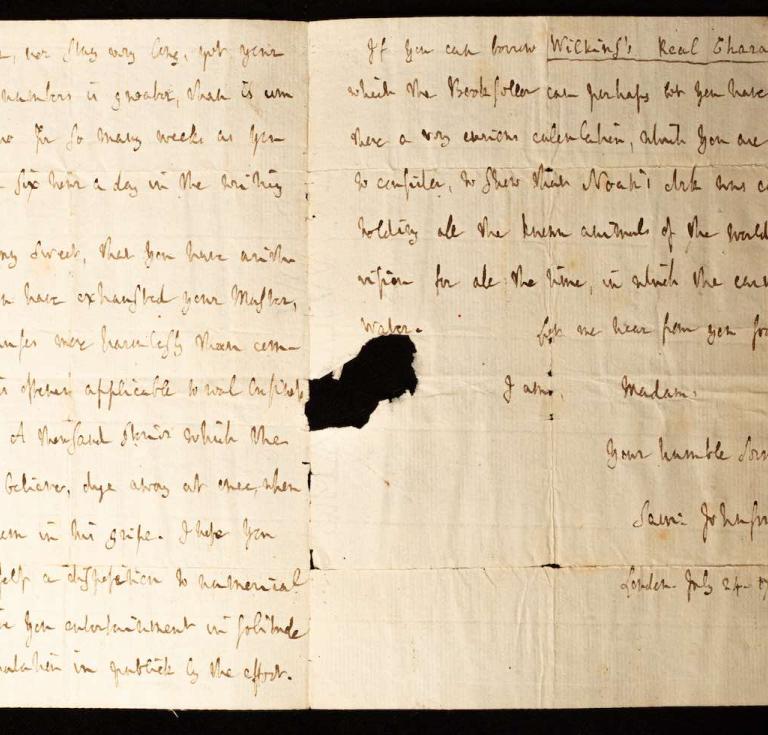 nor stay very long, yet your
numbers is greater, than is com
for so many weeks as you
six hours a day in the writing
my Sweet, that you have arith
n have exhausted your Master,
muses more harmlessly than com-
is oftener applicable to real business
A thousand stories which the
believe, dye away at once, when
em in his gripe. I hope you
self a disposition to numerical
ve you entertainment in solitude
putation in publick by the effect.
If you can borrow Wilkins's Real Chara
which the Bookseller can perhaps let you have
there a very curious calculation, which you are
to consider, to shew that Noah's Ark was c
holding all the known animals of the world
vision for all the time, in which the ear
water. Let me hear from you soo
I am, Madam,
Your humble Serv
Sam: Johnso
London. July 24. 17